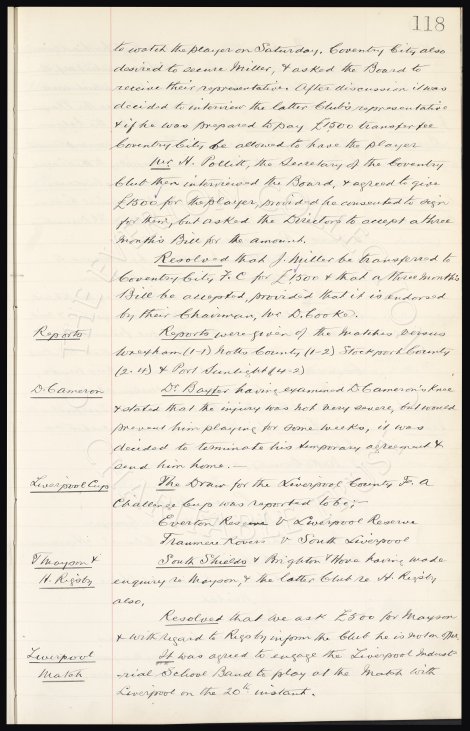 118
to watch the player on Saturday. Coventry City also
desired to secure Miller, & asked the Board to
receive their representative. After discussion it was
decided to interview the latter Club's representative
& if he was prepared to pay £1500 transfer fee
Coventry City be allowed to have the player
Mr H. Pollitt, the Secretary of the Coventry
Club then interviewed the Board, & agreed to give
£1500 for the player, provided he consented to sign
for them, but asked the Directors to accept a three
months Bill for the amount.
Resolved that J. Miller be transferred to
Coventry City F.C for £1500 & that a three months
Bill be accepted, provided that it is endorsed
by their Chairman, Mr D. Cooke.
Reports Reports were given of the matches versus
Wrexham (1-1) Notts County (1-2) Stockport County
(2-4) & Port Sunlight (4-2)
D. Cameron Dr Baxter having examined D. Cameron's knee
& stated that the injury was not very severe, but would
prevent him playing for some weeks, it was
decided to terminate his temporary agreement &
send him home.—
Liverpool Cup The Draw for the Liverpool County F. A
Challenge Cup was reported to be;—
Everton Reserve V Liverpool Reserve
Tranmere Rovers V South Liverpool
J Mayson & South Shields & Brighton & Hove having made
H. Rigsby enquiry re Mayson, & the latter Club re H. Rigsby
also,
Resolved that we ask £500 for Mayson
& with regard to Rigsby inform the Club he is not on offer
Liverpool It was agreed to engage the Liverpool Indust-
Match rial School Band to play at the Match with
Liverpool on the 20th instant.